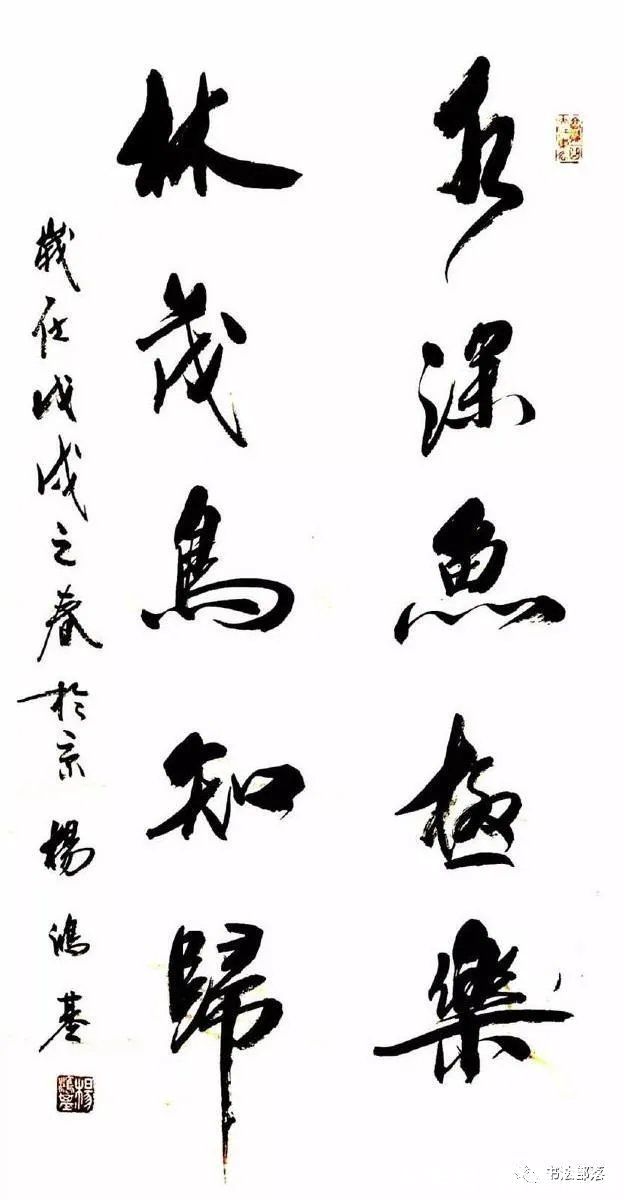 水深魚極樂
林茂鳥知歸
歲在戊戌之春於京 楊鴻基
书法部落